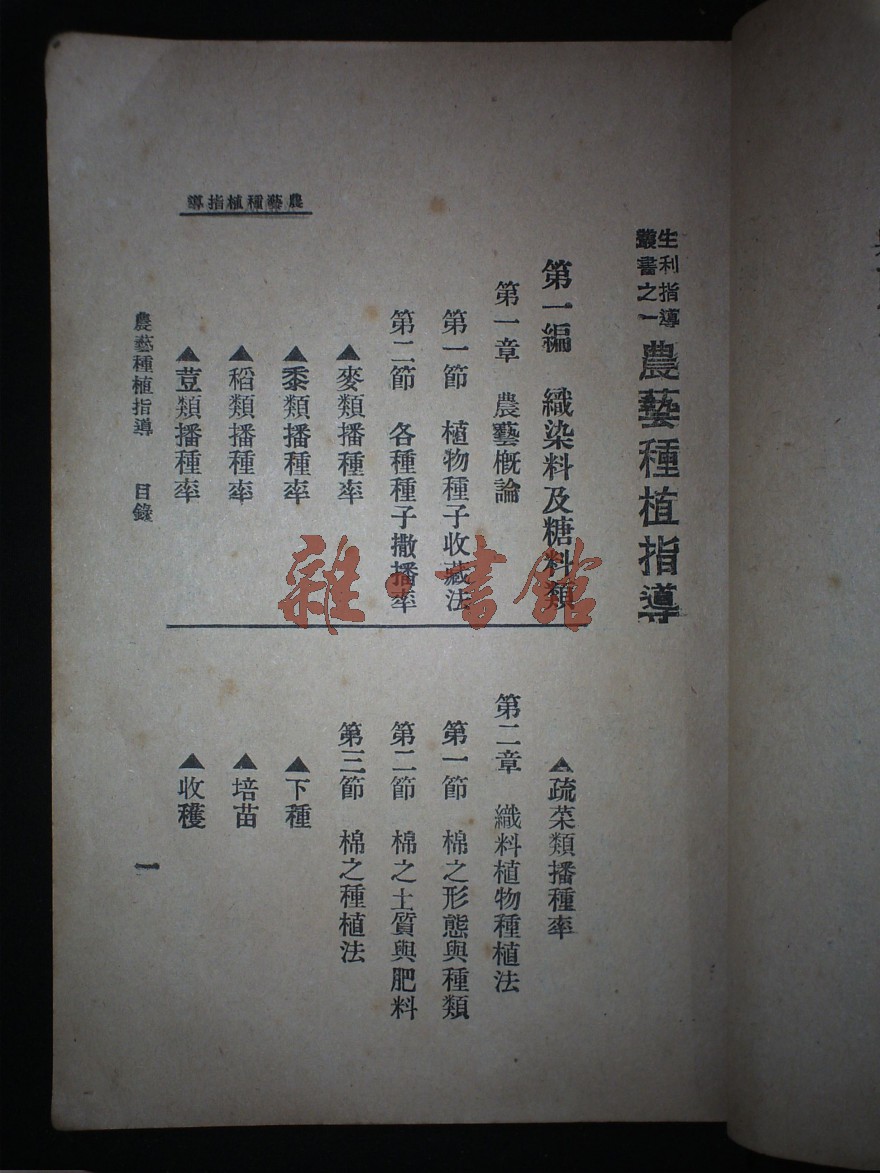 生利指導
叢書之一
農藝種植指導
第一編　織染料及糖料類
第一章　農藝概論
第一節　植物種子收藏法
第二節　各種種子撒播率
▲麥類播種率
▲黍類播種率
▲稻類播種率
▲荳類播種率
▲疏菜類播種率
第二章　織料植物種植法
第一節　棉之形態與種類
第二節　棉之土質與肥料
第三節　棉之種植法
▲下種
▲培苗
▲收穫
農藝種植指導　目錄
一
農藝種植指導
雜·書館